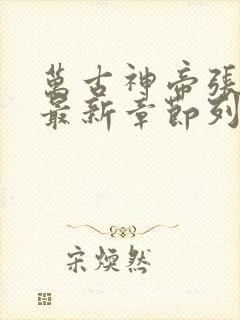 萬古神帝張
最新章節列
宋煥然